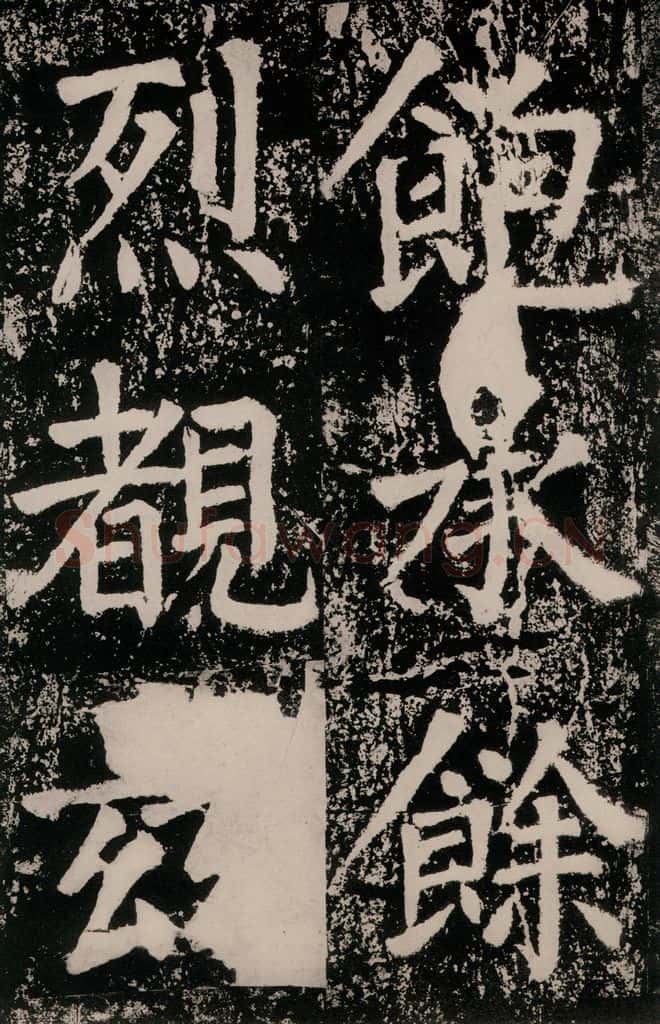 飽承餘
烈覩玄
Shufawang.CN